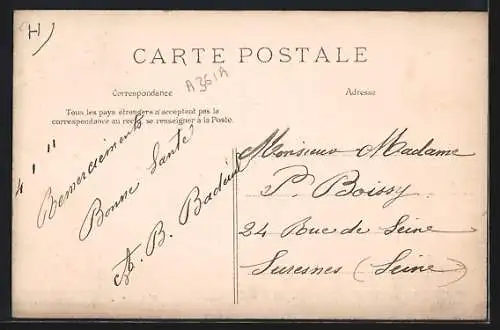 H
CARTE POSTALE
A361A
Correspondance
Adresse
Tous les pays étrangers n'acceptent pas la
correspondance au recto, se renseigner à la Poste.
4 1 11
Remerciements
Bonne Santé
A. B. Badeui
Monsieur Madame
P. Boissy
24 Rue de Seine
Suresnes (Seine)